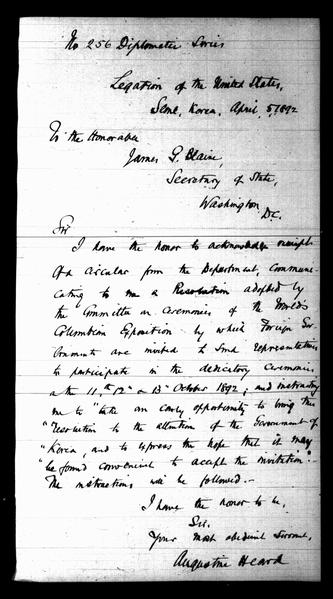 No 256 Diplomatic Series
Legation of the United States,
Seoul, Korea, April 5, 1892
To the Honorable
James G. Blaine,
Secretary of State,
Washington
D.C.
Sir
I have the honor to acknowledge receipt
of a circular from the Department, communi-
cating to me a Resolution adopted by
the Committee on Ceremonies of the World's
Columbian Exposition by which Foreign Gov-
ernments are invited to send representatives
to participate in the dedicatory ceremonies
on the 11th, 12th & 13th October 1892; and instructing
me to "take an early opportunity to bring this
"resolution to the attention of the Government of
"Korea, and to express the hope that it may
"be found convenient to accept the invitation".
The instructions will be followed.-
I have the honor to be,
Sir,
Your most obedient servant,
Augustine Heard